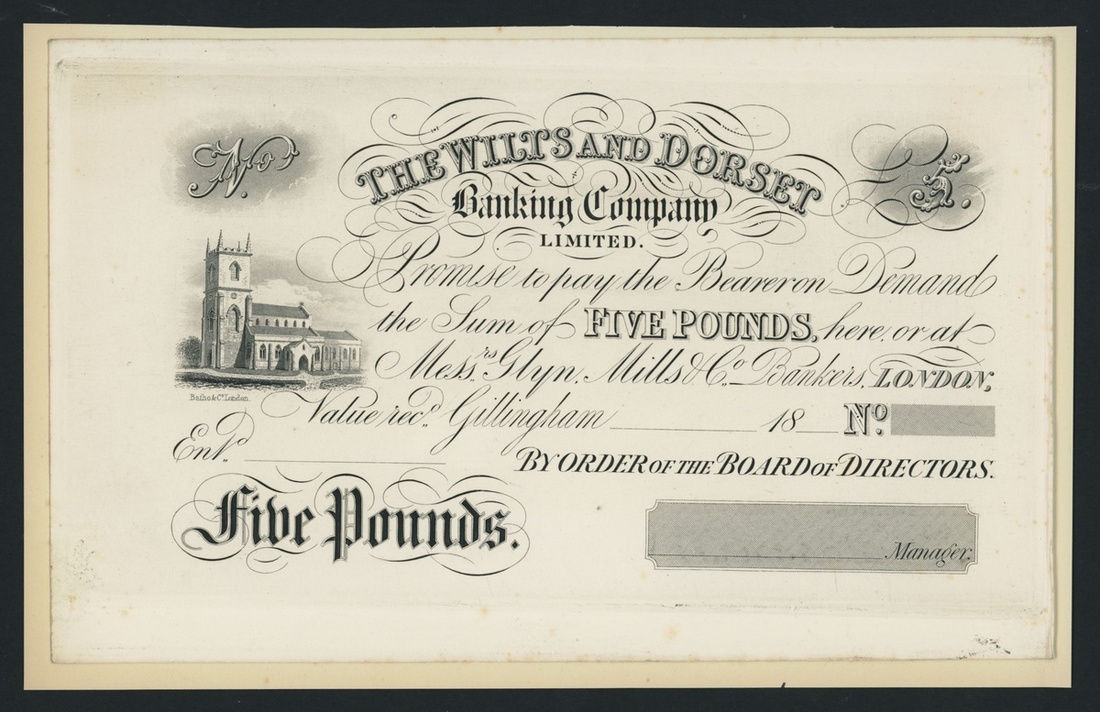 No
THE WILTS AND DORSET
£5.
Banking Company
LIMITED.
Promise to pay the Bearer on Demand
the Sum of FIVE POUNDS, here or at
Messrs. Glyn, Mills & Co. Bankers, LONDON,
Batho & Co. London.
Value recd. Gillingham 18 No.
Entd.
BY ORDER OF THE BOARD OF DIRECTORS.
Five Pounds.
Manager.